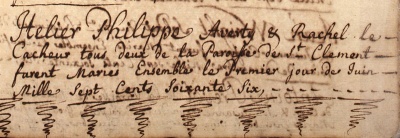 Helier Philippe Averty & Rachel le
Cacheur tous deux de la Paroisse de St Clement
furent Mariés Ensemble le Premier jour de Juin
Mille Sept Cents Soixante Six,